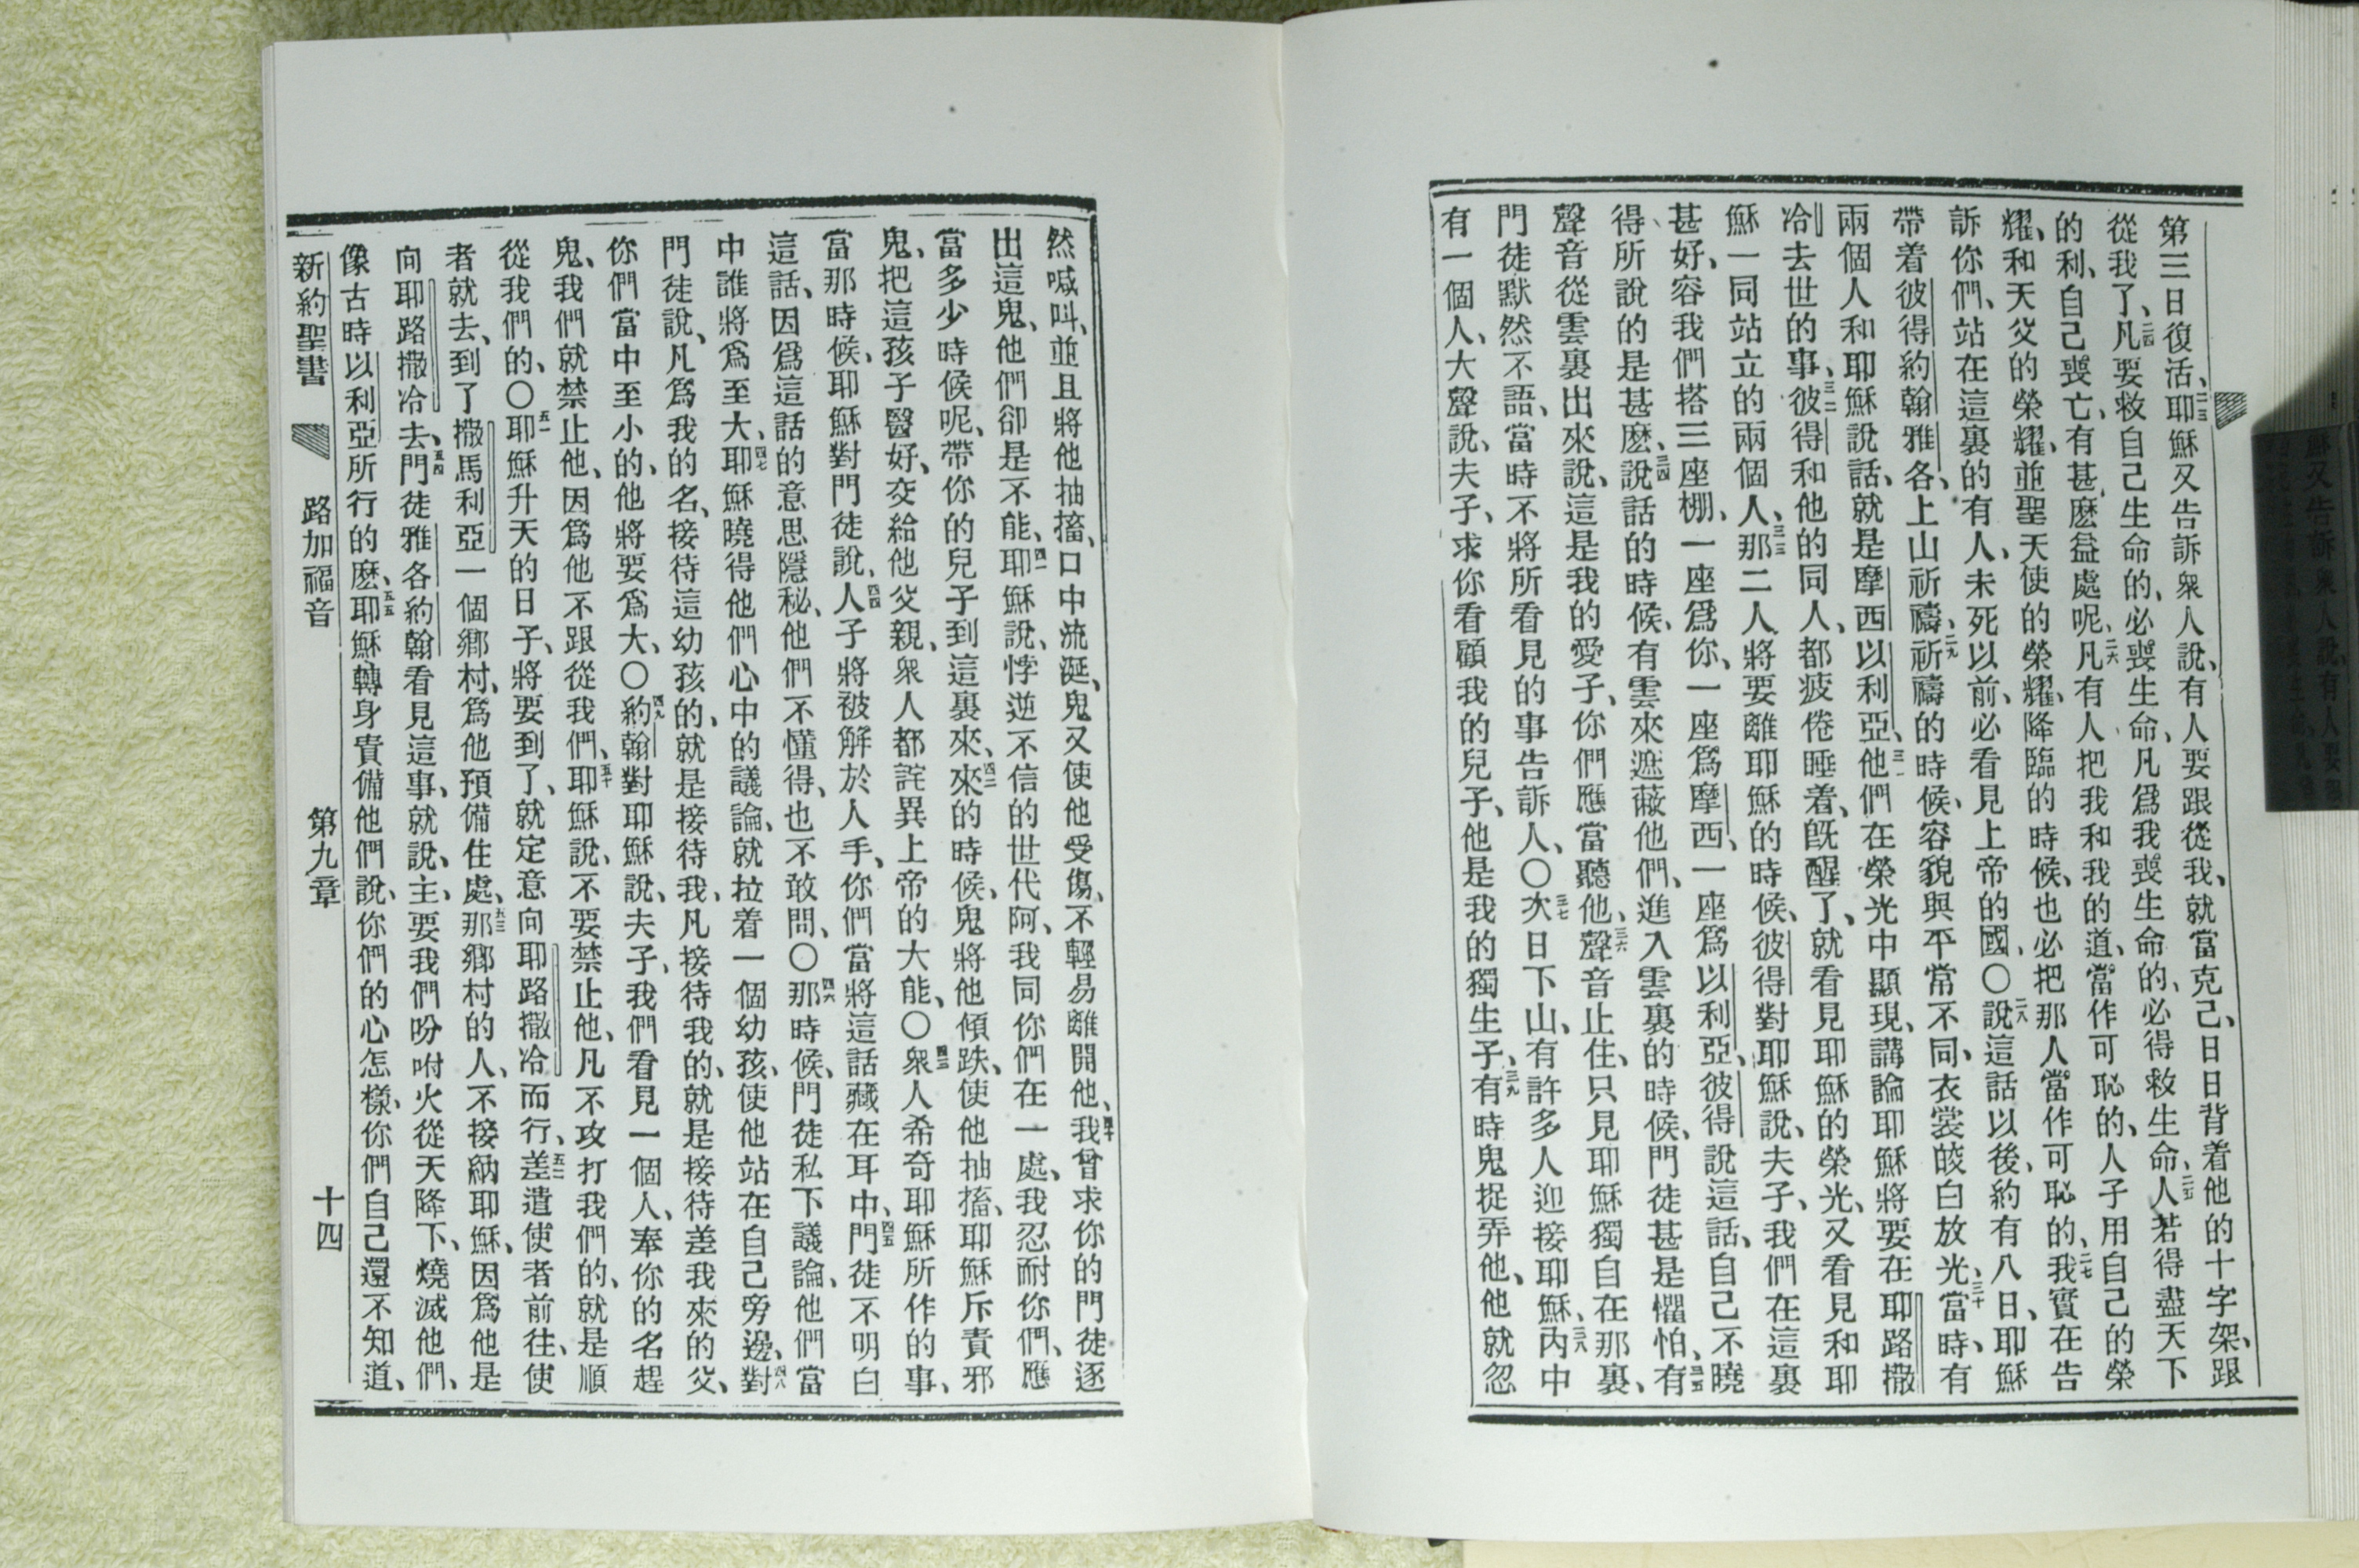 第三日復活、二三耶穌又告訴衆人說、有人要跟從我、就當克己、日日背着他的十字架、跟
從我了、二四凡要救自己生命的、必喪生命、凡爲我喪生命的、必得救生命、二五人若得盡天下
的利、自己喪亡、有甚麽益處呢、二六凡有人把我和我的道、當作可恥的、人子用自己的榮
耀、和天父的榮耀、並聖天使的榮耀、降臨的時候、也必把那人當作可恥的、二七我實在告
訴你們、站在這裏的有人、未死以前、必看見上帝的國、〇二八說這話以後、約有八日、耶穌
帶着彼得約翰雅各、上山祈禱、二九祈禱的時候、容貌與平常不同、衣裳皎白放光、三十當時、有
兩個人和耶穌說話、就是摩西以利亞、三一他們在榮光中顯現、講論耶穌將要在耶路撒
冷去世的事、三二彼得和他的同人、都疲倦睡着、旣醒了、就看見耶穌的榮光、又看見和耶
穌一同站立的兩個人、三三那二人將要離耶穌的時候、彼得對耶穌說、夫子、我們在這裏
甚好、容我們搭三座棚、一座爲你、一座爲摩西、一座爲以利亞、彼得說這話、自己不曉
得所說的是甚麽、三四說話的時候、有雲來遮蔽他們、進入雲裏的時候、門徒甚是懼怕、三五有
聲音從雲裏出來說、這是我的愛子、你們應當聽他、三六聲音止住、只見耶穌獨自在那裏、
門徒默然不語、當時不將所看見的事告訴人、〇三七次日下山、有許多人迎接耶穌、三八內中
有一個人、大聲說、夫子、求你看顧我的兒子、他是我的獨生子、三九有時鬼捉弄他、他就忽
然喊叫、並且將他抽搐、口中流涎、鬼又使他受傷、不輕易離開他、四十我曾求你的門徒逐
出這鬼、他們卻是不能、四一耶穌說、悖逆不信的世代阿、我同你們在一處、我忍耐你們、應
當多少時候呢、帶你的兒子到這裏來、四二來的時候、鬼將他傾跌、使他抽搐、耶穌斥責邪
鬼、把這孩子醫好、交給他父親、衆人都詫異上帝的大能、〇四三衆人希奇耶穌所作的事、
當那時候、耶穌對門徒說、四四人子將被解於人手、你們當將這話藏在耳中、四五門徒不明白
這話、因爲這話的意思隱秘、他們不懂得、也不敢問、〇四六那時候、門徒私下議論、他們當
中誰將爲至大、四七耶穌曉得他們心中的議論、就拉着一個幼孩、使他站在自己旁邊、四八對
門徒說、凡爲我的名、接待這幼孩的、就是接待我、凡接待我的、就是接待差我來的父、
你們當中至小的、他將要爲大、〇四九約翰對耶穌說、夫子、我們看見一個人、奉你的名趕
鬼、我們就禁止他、因爲他不跟從我們、五十耶穌說、不要禁止他、凡不攻打我們的、就是順
從我們的、〇五一耶穌升天的日子、將要到了、就定意向耶路撒冷而行、五二差遣使者前往、使
者就去、到了撒馬利亞一個鄕村、爲他預備住處、五三那鄕村的人、不接納耶穌、因爲他是
向耶路撒冷去、五四門徒雅各約翰看見這事、就說、主、要我們吩咐火從天降下、燒滅他們、
像古時以利亞所行的麽、五五耶穌轉身責備他們說、你們的心怎樣、你們自己還不知道、
新約聖書 路加福音 第九章 十四